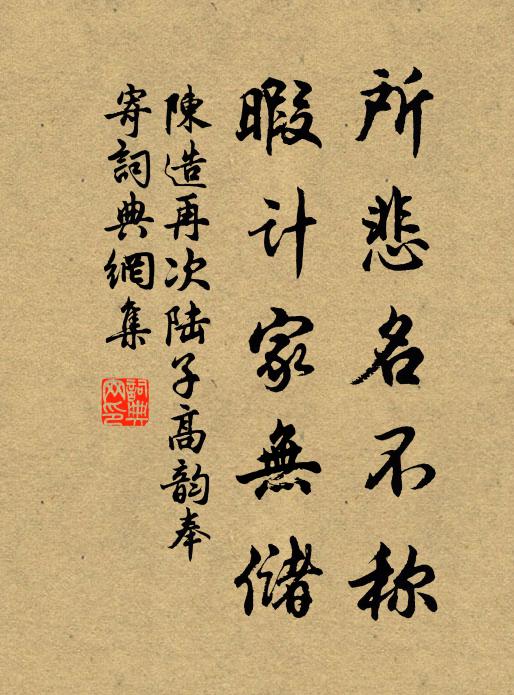 所悲名不称
暇计家無储
陳造再次陆子高韵奉
寄詞典網集
詞典